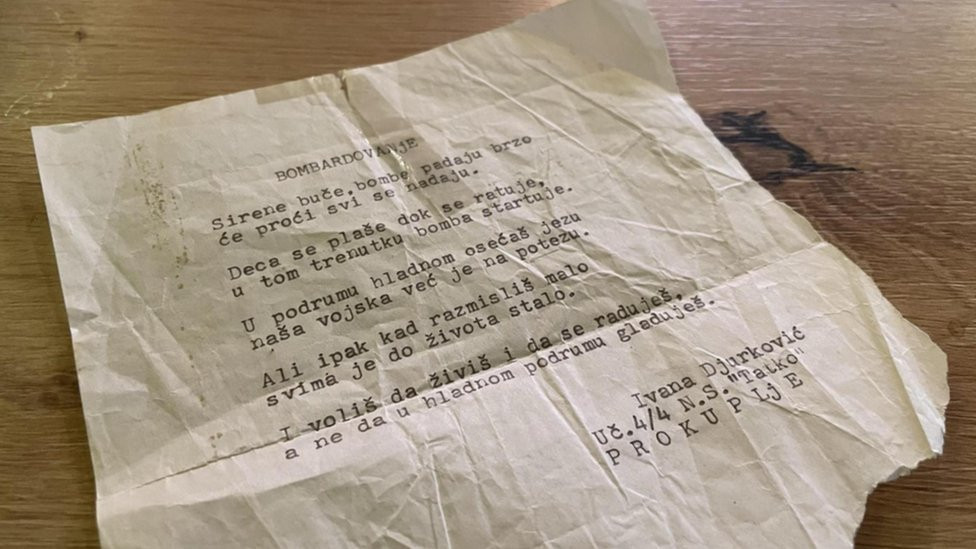 BOMBARDOVANjE
Sirene buče,bombe padaju brzo
će proći svi se nadaju.
Deca se plaše dok se ratuje,
u tom trenutku bomba startuje.
U podrumu hladnom osećaš jezu
naša vojska već je na potezu.
Ali ipak kad razmisliš malo
svima je do života stalo.
I voliš da živiš i da se raduješ,
a ne da u hladnom podrumu gladuješ.
Ivana Djurković
Uč.4/4 N.S."Tatko"
P R O K U P Lj E